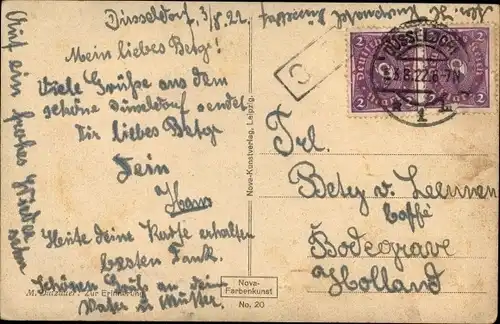 Düsseldorf, 3/8.22.
Mein liebes Betsy!
Viele Grüße aus dem
schöne Düsseldorf sendet
Dir liebes Betsy
Dein
Heute deine Karte erhalten
besten Dank.
Schönen Gruß an deine
Vater u Mutter.
Auf ein frohes Wieder
sehn
M. : Zur Erinnerung
Nova-Kunstverlag, Leipzig.
Nova-
Farbenkunst
No. 20
C
DÜSSELDORF
3.8.22.6-7N
1
2 Deutsches Reich 2
2 2
Frl.
Betsy v. Leeuwen
Caffé
Bodegrave
Holland